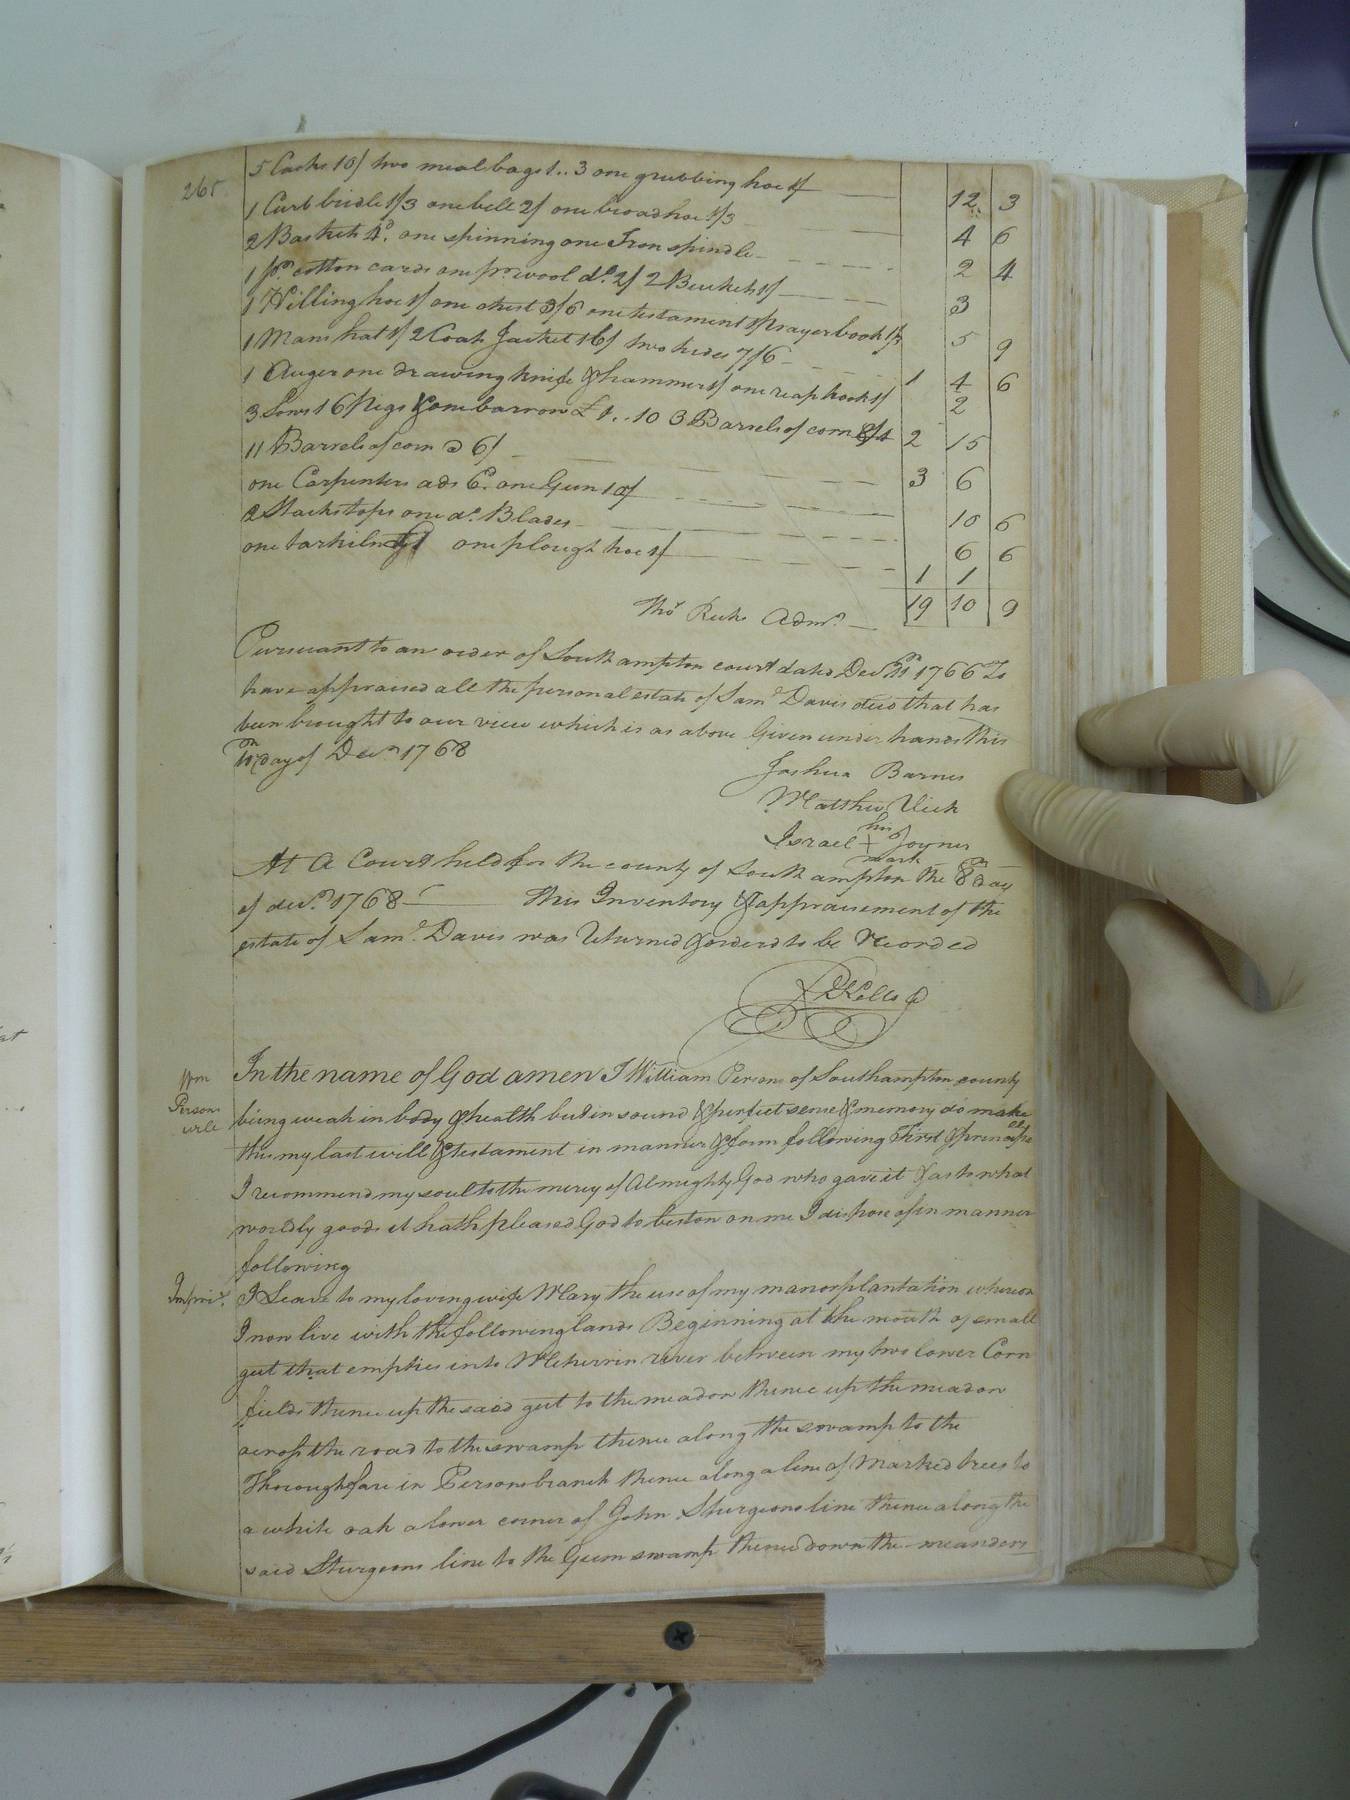 265
5 Casks 10/ two meal bags 1..3 one grubbing hoe 1/ 12 3
1 Curb bridle 1/3 one bell 2/ one broad hoe 1/3 4 6
2 Baskets 4d. one spinning one Iron spindle 2 4
1 pr cotton cards one pr. wool do. 2/ 2 Buckets 1/ 3
1 Hilling hoe 1/ one chest 3/6 one testament & prayer book 1/3 5 9
1 Mans hat 1/ 2 Coats Jacket 16/ two hides 7/6 1 4 6
1 Auger one drawing knife & hammer 1/ one reap hook 1/ 2
3 Sows 16 Pigs & one barrow £1..10 3 Barrels of corn 2 15
11 Barrels of corn @ 6/ 3 6
one Carpenters ads 6d. one Gun 10/ 10 6
2 Stocks tops one do. Blades 6 6
one tarkiln one plough hoe 1/ 1 1
Thos Ricks Admr. 19 10 9
Pursuant to an order of Southampton court dated Decr 1766 To
have appraised all the personal estate of Saml Davis decd that has
been brought to our view which is as above Given under hands this
day of Decr 1768
Joshua Barnes
Matthew Vick
his
Israel + Joyner
mark
At A Court held for the county of Southampton the 8th day
of decr. 1768 This Inventory & appraisement of the
estate of Saml. Davis was Returned & ordered to be Recorded
RKello
Wm
Persons
In the name of God amen I William Persons of Southampton county
being weak in body & health but in sound & perfect sense & memory do make
this my last will & testament in manner & form following First & principally
I recommend my soul to the mercy of Almighty God who gave it & as to what
worldly goods it hath pleased God to bestow on me I dispose of in manner
following
Impris.
I Leave to my loving wife Mary the use of my manor plantation whereon
I now live with the following lands Beginning at the mouth of small
gut that empties into Meherrin river between my two lower Corn
fields thence up the said gut to the meadow thence up the meadow
across the road to the swamp thence along the swamp to the
Thoroughfare in Persons branch thence along a line of Marked trees to
a white oak a lower corner of John Sturgeons line thence along the
said Sturgeons line to the Gum swamp thence down the meanders